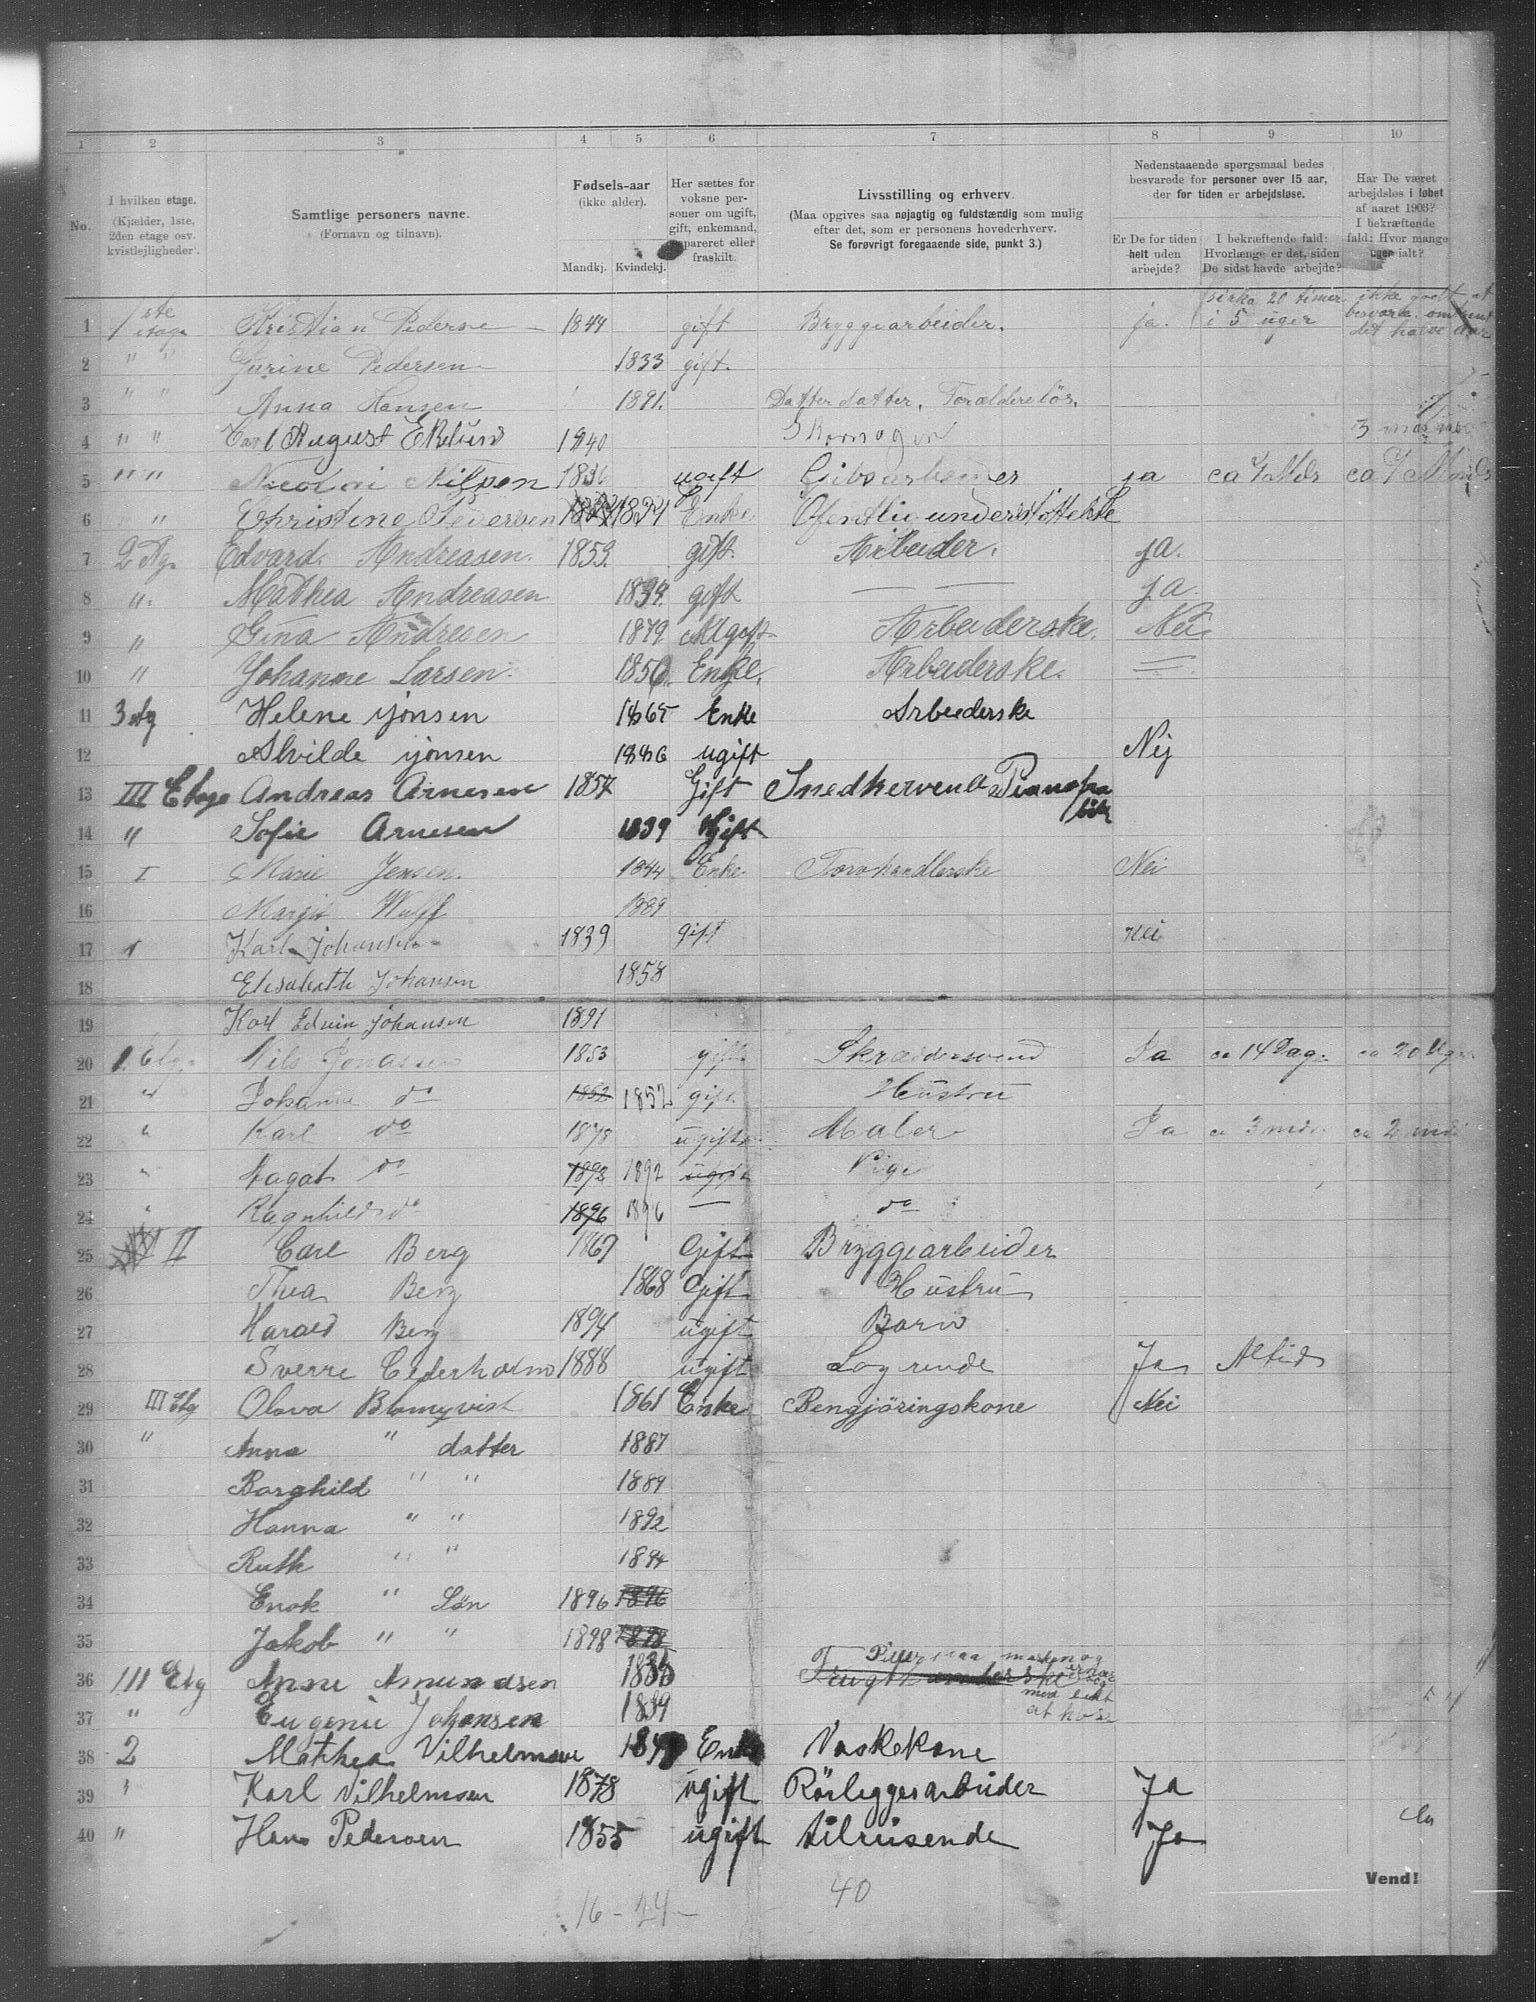 1 2 3 4 5 6 7 8 9 10
No.
I hvilken etage.
(Kjælder, 1ste, 2den etage osv. kvistlejligheder).
Samtlige personers navne.
(Fornavn og tilnavn).
Fødsels-aar
(ikke alder).
Mandkj. Kvindekj.
Her sættes for voksne personer om ugift, gift, enkemand, separeret eller fraskilt.
Livsstilling og erhverv.
(Maa opgives saa nøjagtig og fuldstændig som mulig efter det, som er personens hovederhverv.
Se forøvrigt foregaaende side, punkt 3.)
Nedenstaaende spørgsmaal bedes besvarede for personer over 15 aar, der for tiden er arbejdsløse.
Er De for tiden helt uden arbejde?
I bekræftende fald: Hvorlænge er det, siden De sidst havde arbejde?
Har De været arbejdsløs i løbet af aaret 1903? I bekræftende fald: Hvor mange uger ialt?
1 1ste etage Kristian Pederse 1844 gift Bryggearbeider. ja. sirka 20 timer i 5 uger ikke godt at det halve aar
2 " " Gurine Pedersen 1833 gift.
3 " " Anna Hansen 1891. Datterdatter, Forældreløs.
4 " " Carl August Ekelund 1840 Skomager 3
5 " " Nicolai Nilsen 1836 ugift Gibsarbeider ja ca 7 Mdr ca 7
6 " Christine Pedersen 1821 Enke Ofentlig understøttelse
7 2 Etg. Edvard. Andreasen. 1859. gift. Arbeider. ja.
8 " Mathea Andreasen 1839. gift — ja.
9 " Gina Andresen 1879 Ugift Arbeiderske. Nei
10 " Johanne Larsen. 1856. Enke. Arbeiderske. =
11 3 etg Helene Jonsen 1865 Enke Arbeiderske
12 Alvilde Jonsen 1886 ugift Nej
13 III Etage Andreas Arnesen 1857 Gift Snedkersvend Pianofabrik
14 " Sofie Arnesen 1839 Gift
15 I Marie Jensen. 1844 Enke. Torvhandlerske Nei
16 Margit Wulff 1889
17 1 Karl Johansen 1839 gift nei
18 Elisabeth Johansen 1858
19 Karl Edvin Johansen 1891
20 1. Etg. Nils Jonassen 1853 gift Skræddersvend Ja ca 14 Dag. ca 20 Uger
21 " Johanne do 1852 1852 gift Hustru
22 " Karl do 1878 ugift Maler Ja ca 3 mdr. ca 2 md
23 " Dagot do 1892 1892 ugift Pige
24 " Ragnhild do 1896 1896 — do
25 II Carl Berg 1867 Gift Bryggearbeider
26 Thea Berg 1868 Gift Hustru
27 Harald Berg 1894 ugift Barn
28 Sverre Cederholm 1888 ugift Løgrende Ja Altid
29 III Etg Olava Blomqvist 1861 Enke Rengjøringskone Nei
30 " Anna " datter 1887
31 Borghild " " 1889
32 Hanna " " 1892
33 Ruth " " 1894
34 Enok " Søn 1896 1896
35 Jakob " " 1898 1898
36 III Etg Anne Amundsen 1835
37 " Eugenie Johansen 1839
38 2 Mathea Vilhelmsen Enke Vaskekone
39 " Karl Vilhelmsen 1878 ugift Rörleggerarbeider Ja
40 " Hans Pedersen 1855 ugift tilreisende Ja
Vend!
16 - 24 - 40